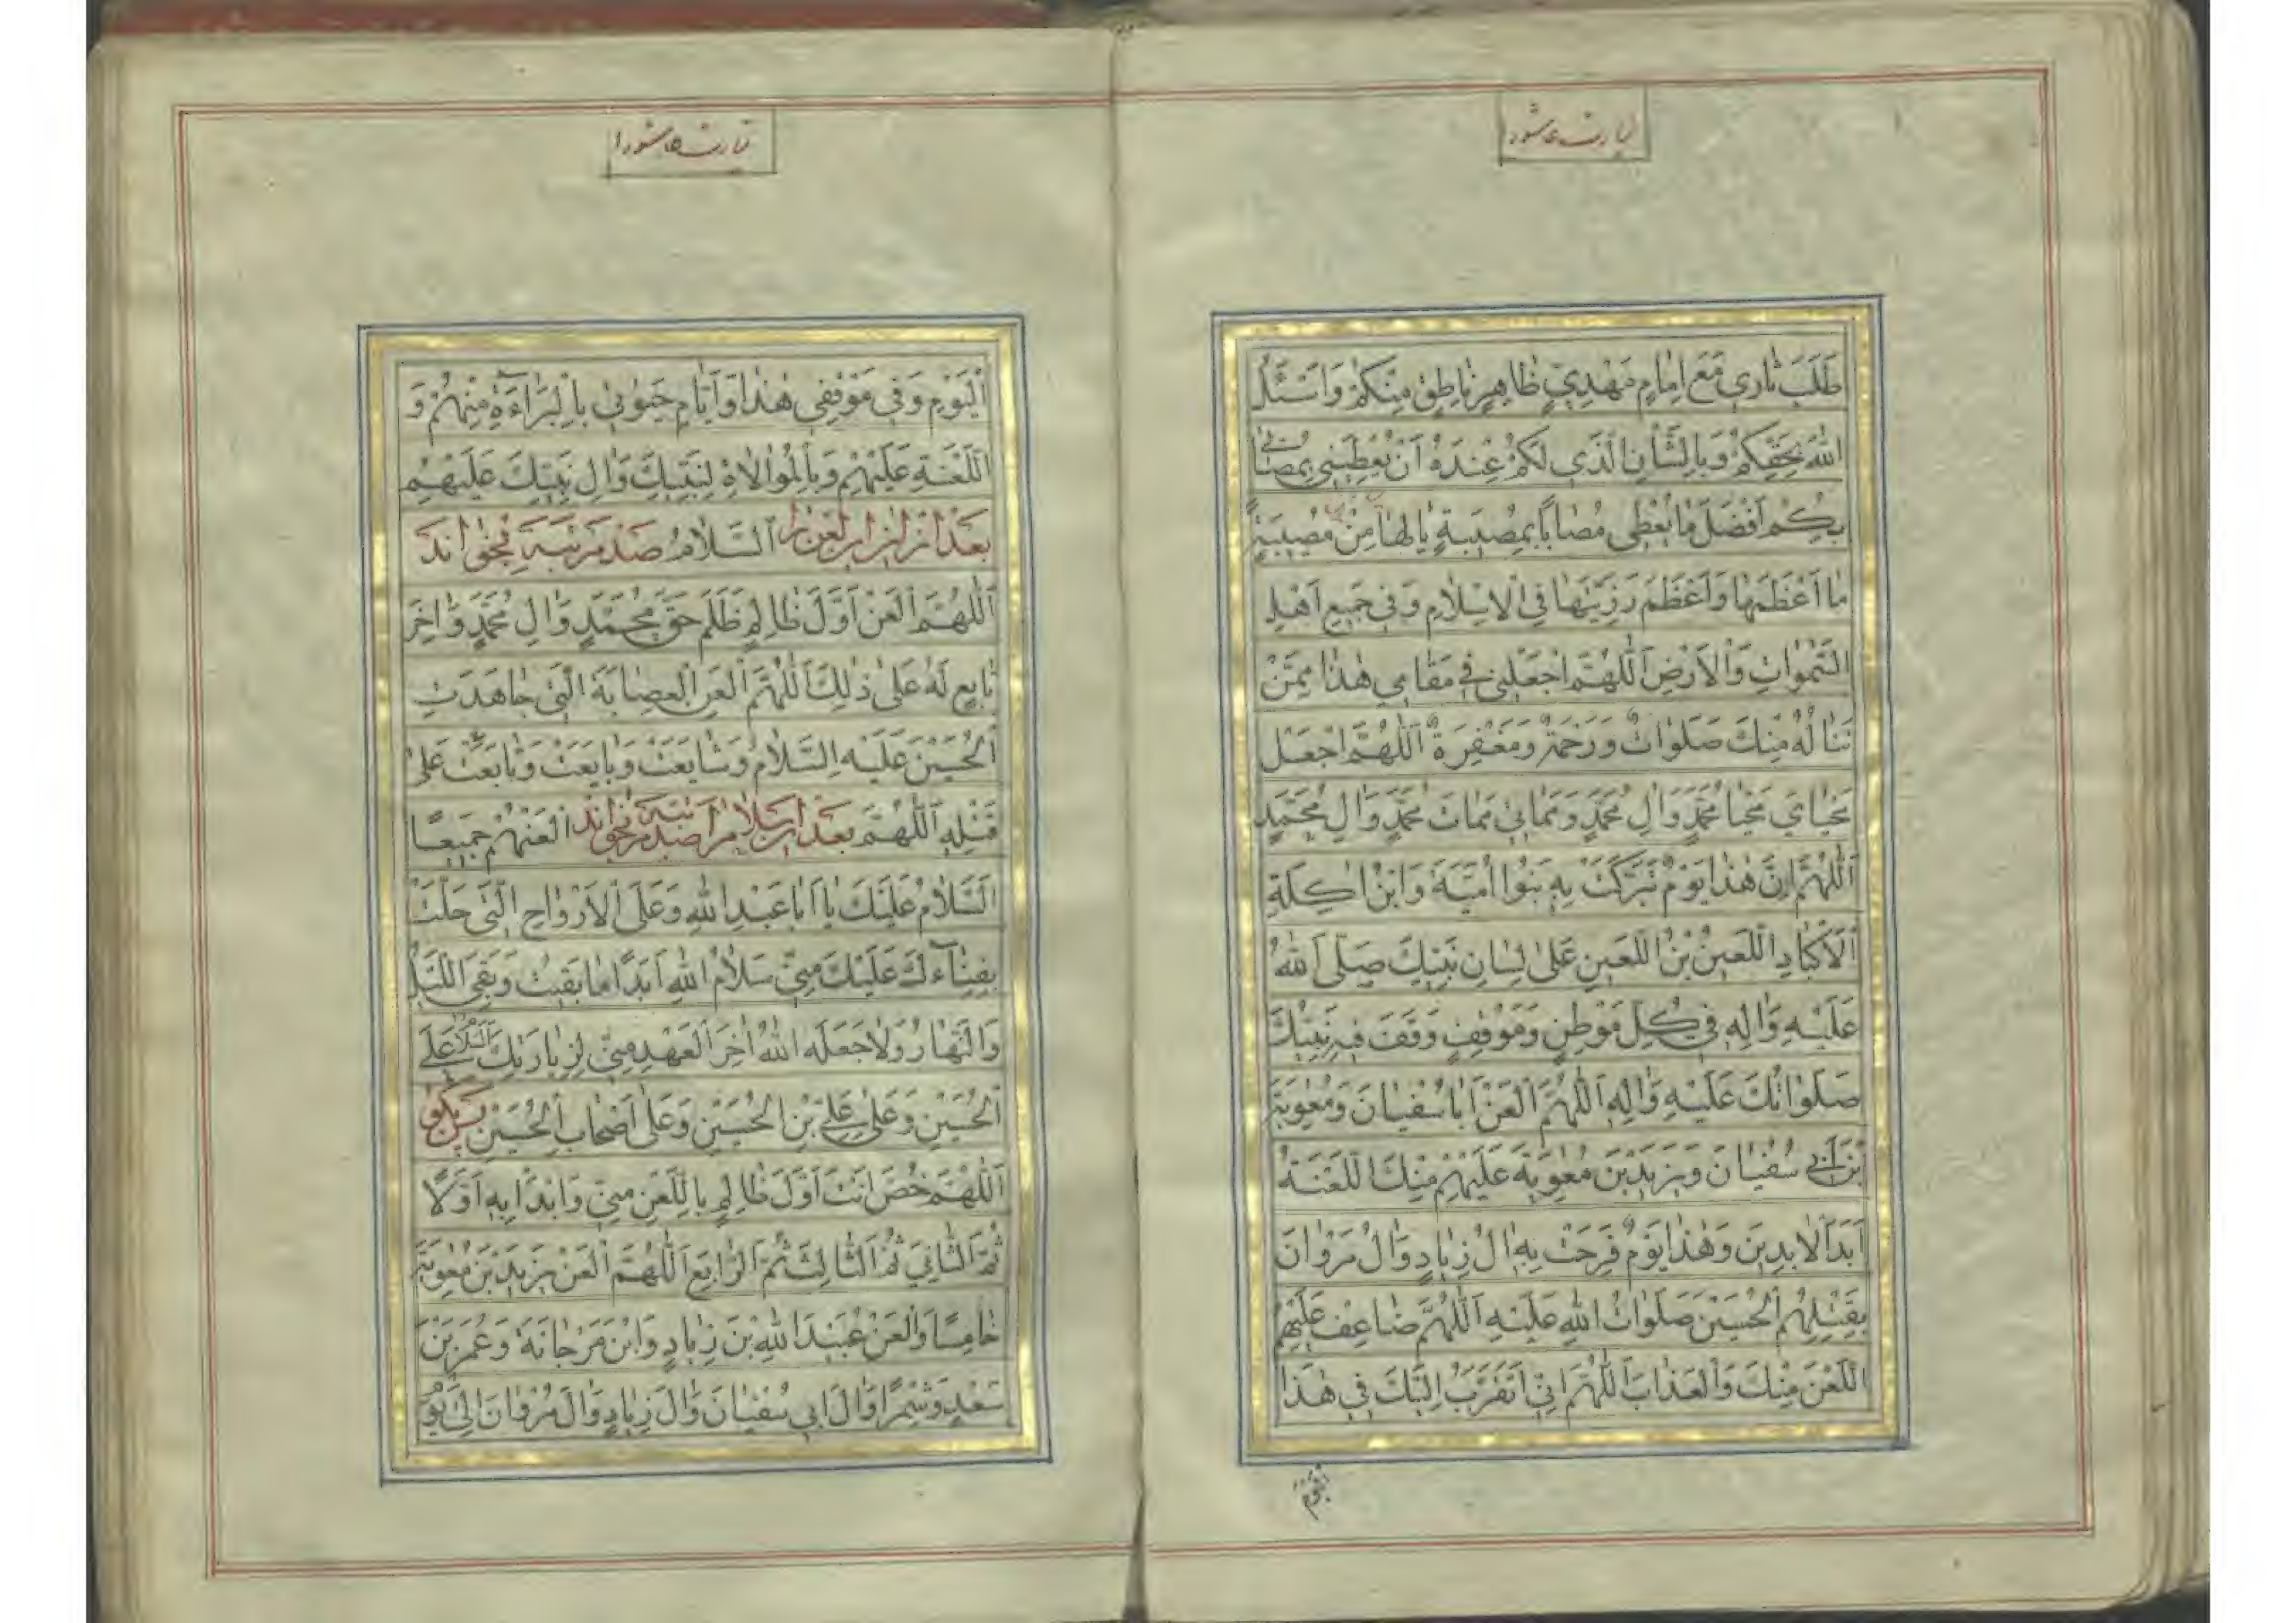 زیارت عاشورا
طَلَبَ ثاري مَعَ اِمامٍ مَهْدِيٍّ ظاهِرٍ ناطِقٍ مِنْكُمْ وَاَسْئَلُ
اللهَ بِحَقِّكُمْ وَبِالشَّأْنِ الَّذي لَكُمْ عِنْدَهُ اَنْ يُعْطِيَني بِمُصابي
بِكُمْ اَفْضَلَ ما يُعْطي مُصابًا بِمُصيبَةٍ يا لَها مِنْ مُصيبَةٍ
ما اَعْظَمَها وَاَعْظَمَ رَزِيَّتَها فِي الْاِسْلامِ وَفي جَميعِ اَهْلِ
السَّمواتِ وَالْاَرْضِ اَللّهُمَّ اجْعَلْني في مَقامي هذا مِمَّنْ
تَنالُهُ مِنْكَ صَلَواتٌ وَرَحْمَةٌ وَمَغْفِرَةٌ اَللّهُمَّ اجْعَلْ
مَحْيايَ مَحْيا مُحَمَّدٍ وَالِ مُحَمَّدٍ وَمَماتي مَماتَ مُحَمَّدٍ وَالِ مُحَمَّدٍ
اَللّهُمَّ اِنَّ هذا يَوْمٌ تَبَرَّكَتْ بِهِ بَنُوا اُمَيَّةَ وَابْنُ اكِلَةِ
الْاَكْبادِ اللَّعينُ بْنُ اللَّعينِ عَلى لِسانِ نَبِيِّكَ صَلَّى اللهُ
عَلَيْهِ وَالِهِ في كُلِّ مَوْطِنٍ وَمَوْقِفٍ وَقَفَ فيهِ نَبِيُّكَ
صَلَواتُكَ عَلَيْهِ وَالِهِ اَللّهُمَّ الْعَنْ اَبا سُفْيانَ وَمُعوِيَةَ
بْنَ اَبي سُفْيانَ وَيَزيدَ بْنَ مُعوِيَةَ عَلَيْهِمْ مِنْكَ اللَّعْنَةُ
اَبَدَ الْابِدينَ وَهذا يَوْمٌ فَرِحَتْ بِهِ الُ زِيادٍ وَالُ مَرْوانَ
بِقَتْلِهِمُ الْحُسَيْنَ صَلَواتُ اللهِ عَلَيْهِ اَللّهُمَّ ضاعِفْ عَلَيْهِمُ
اللَّعْنَ مِنْكَ وَالْعَذابَ اَللّهُمَّ اِنّي اَتَقَرَّبُ اِلَيْكَ في هذَا
زیارت عاشورا
الْيَوْمِ وَفي مَوْقِفي هذا وَاَيّامِ حَيوتي بِالْبَراءَةِ مِنْهُمْ وَ
اللَّعْنَةِ عَلَيْهِمْ وَبِالْمُوالاةِ لِنَبِيِّكَ وَالِ نَبِيِّكَ عَلَيْهِمُ
السَّلامُ بعد از ان این لعن را صد مرتبه بخواند
اَللّهُمَّ الْعَنْ اَوَّلَ ظالِمٍ ظَلَمَ حَقَّ مُحَمَّدٍ وَالِ مُحَمَّدٍ وَاخِرَ
تابِعٍ لَهُ عَلى ذلِكَ اَللّهُمَّ الْعَنِ الْعِصابَةَ الَّتي جاهَدَتِ
الْحُسَيْنَ عَلَيْهِ السَّلامُ وَشايَعَتْ وَبايَعَتْ وَتابَعَتْ عَلى
قَتْلِهِ اَللّهُمَّ الْعَنْهُمْ جَميعًا بعد از ان سلام را صد مرتبه بخواند
اَلسَّلامُ عَلَيْكَ يا اَبا عَبْدِ اللهِ وَعَلَى الْاَرْواحِ الَّتي حَلَّتْ
بِفِناءِكَ عَلَيْكَ مِنّي سَلامُ اللهِ اَبَدًا ما بَقيتُ وَبَقِيَ اللَّيْلُ
وَالنَّهارُ وَلا جَعَلَهُ اللهُ اخِرَ الْعَهْدِ مِنّي لِزِيارَتِكَ السَّلامُ عَلَى
الْحُسَيْنِ وَعَلى عَلِيِّ بْنِ الْحُسَيْنِ وَعَلى اَصْحابِ الْحُسَيْنِ پس بگو
اَللّهُمَّ خُصَّ اَنْتَ اَوَّلَ ظالِمٍ بِاللَّعْنِ مِنّي وَابْدَاْ بِهِ اَوَّلًا
ثُمَّ الثّانِيَ ثُمَّ الثّالِثَ ثُمَّ الرّابِعَ اَللّهُمَّ الْعَنْ يَزيدَ بْنَ مُعوِيَةَ
خامِسًا وَالْعَنْ عُبَيْدَ اللهِ بْنَ زِيادٍ وَابْنَ مَرْجانَةَ وَعُمَرَ بْنَ
سَعْدٍ وَشِمْرًا وَالَ اَبي سُفْيانَ وَالَ زِيادٍ وَالَ مَرْوانَ اِلى يَوْمِ